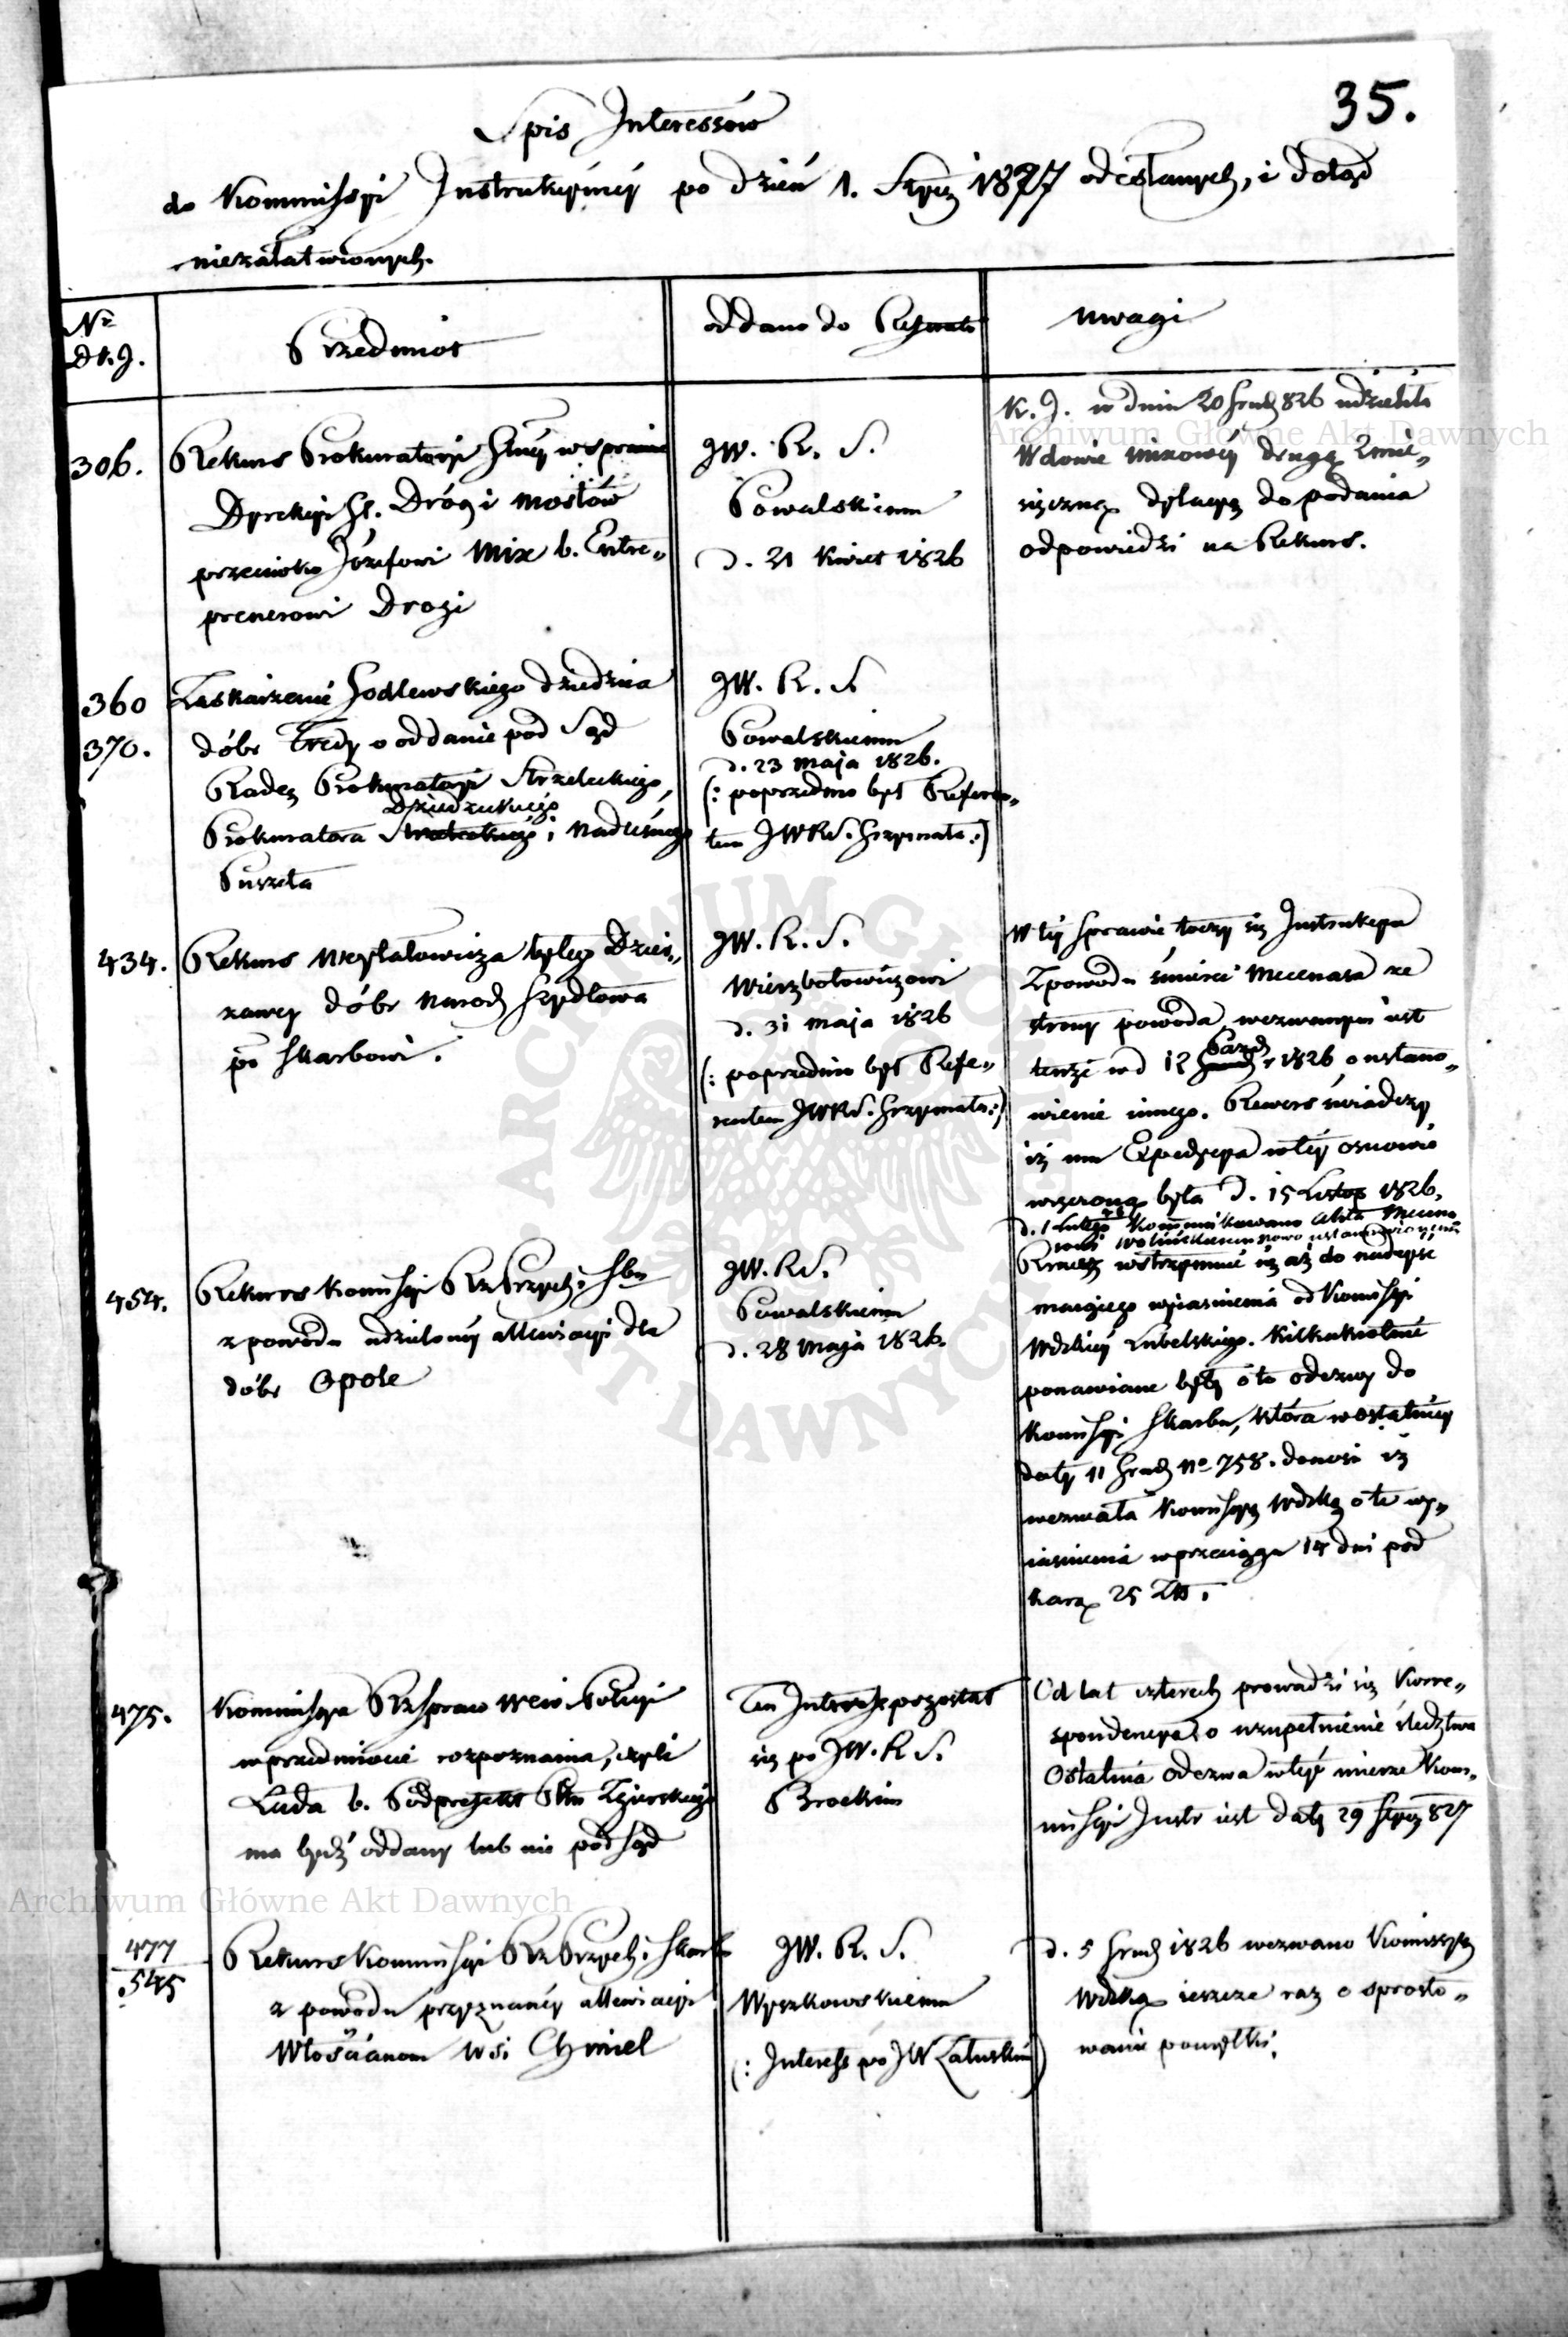 35.
Spis Interessów
do Kommissyi Instrukcyiney po dzień 1. Stycz 1827 odesłanych, i dotąd
niezałatwionych.
Nr
Dz. J.
Przedmiot
oddano do Referatu
uwagi
306.
Rekurs Prokuratoryi Glney w sprawie
Dyrekcyi Gl. Dróg i mostów
przeciwko Józefowi Mix b. Entre„
prenerowi Drogi
JW. R. S.
Kowalskiemu
d. 21 Kwiet 1826
K. J. w dniu 20 Grud 826 udzieliła
Wdowie Mixowey drugą 2 mie„
sięczną dylacyę do podania
odpowiedzi na Rekurs.
360
370.
Zaskarżenie Godlewskiego dziedzica
dóbr Tredy o oddanie pod Sąd
Radcy Prokuratoryi Strzeleckiego,
Dziedzickiego
Prokuratora i Nadleśnego
Puszeta
JW. R. S.
Kowalskiemu
d. 23 maja 1826.
(: poprzednio był Referen„
tem JWRS. Grzymała :)
434.
Rekurs byłego Dzier„
żawcy dóbr Narod Szydłowa
po Skarbowi.
JW. R. S.
Wierzbołowiczowi
d. 31 maja 1826
(: poprzednio był Refe„
rentem JWRS. Grzymała :)
W tey sprawie toczy się Instrukcya
Z powodu śmierci Mecenasa ze
strony powoda, wezwanym iest
tenże w d 12 Pazdz r 1826 o ustano„
wienie innego. Rewers świadczy
iż mu Expedycya w tey osnowie
wręczoną była d. 15 Listop 1826.
d. 1 Lutego Kommunikowano Akta Mecena
sowi Wolińskiemu nowo ustanowionemu
454.
Rekurs Kommissyi Rz Przych. i Sbu
z powodu udzieloney allewiacyi dla
dóbr Opole
JW. RS.
Kowalskiemu
d. 28 Maja 1826.
Rzecz wstrzymuie się aż do nadeyść
maiącego wyiaśnienia od Kommissyi
Wdzkiey Lubelskiego. Kilkakrotnie
ponawiane były o to odezwy do
Kommissyi Skarbu, która w ostatniey
daty 11 Grud No 758. donosi iż
wezwała Kommissyę Wdzką o te wy„
iaśnienia w przeciągu 14 dni pod
karą 25 Złt.
475.
Kommissya Rz Spraw Wew i Policyi
w przedmiocie rozpoznania, czyli
Luda b. Podprefekt Ptu Zgierskiego
ma bydź oddany lub nie pod Sąd
Ten Interess pozostał
się po JW. R S.
Brockim
Od lat czterech prowadzi się Korre„
spondencya o uzupełnienie śledztwa
Ostatnia odezwa w tey mierze Kom„
missyi Instr iest daty 29 Stycz 827
477
545
Rekurs Kommissyi Rz Przych. i Skarbu
z powodu przyznaney allewiacyi
Włościanom wsi Chmiel
JW. R. S.
Wyszkowskiemu
(: Interess po JW Załuskim)
d. 5 Grud 1826 wezwano Kommissyę
Wdzką ieszcze raz o sprosto„
wanie pomyłki.
Archiwum Główne Akt Dawnych
Archiwum Główne Akt Dawnych